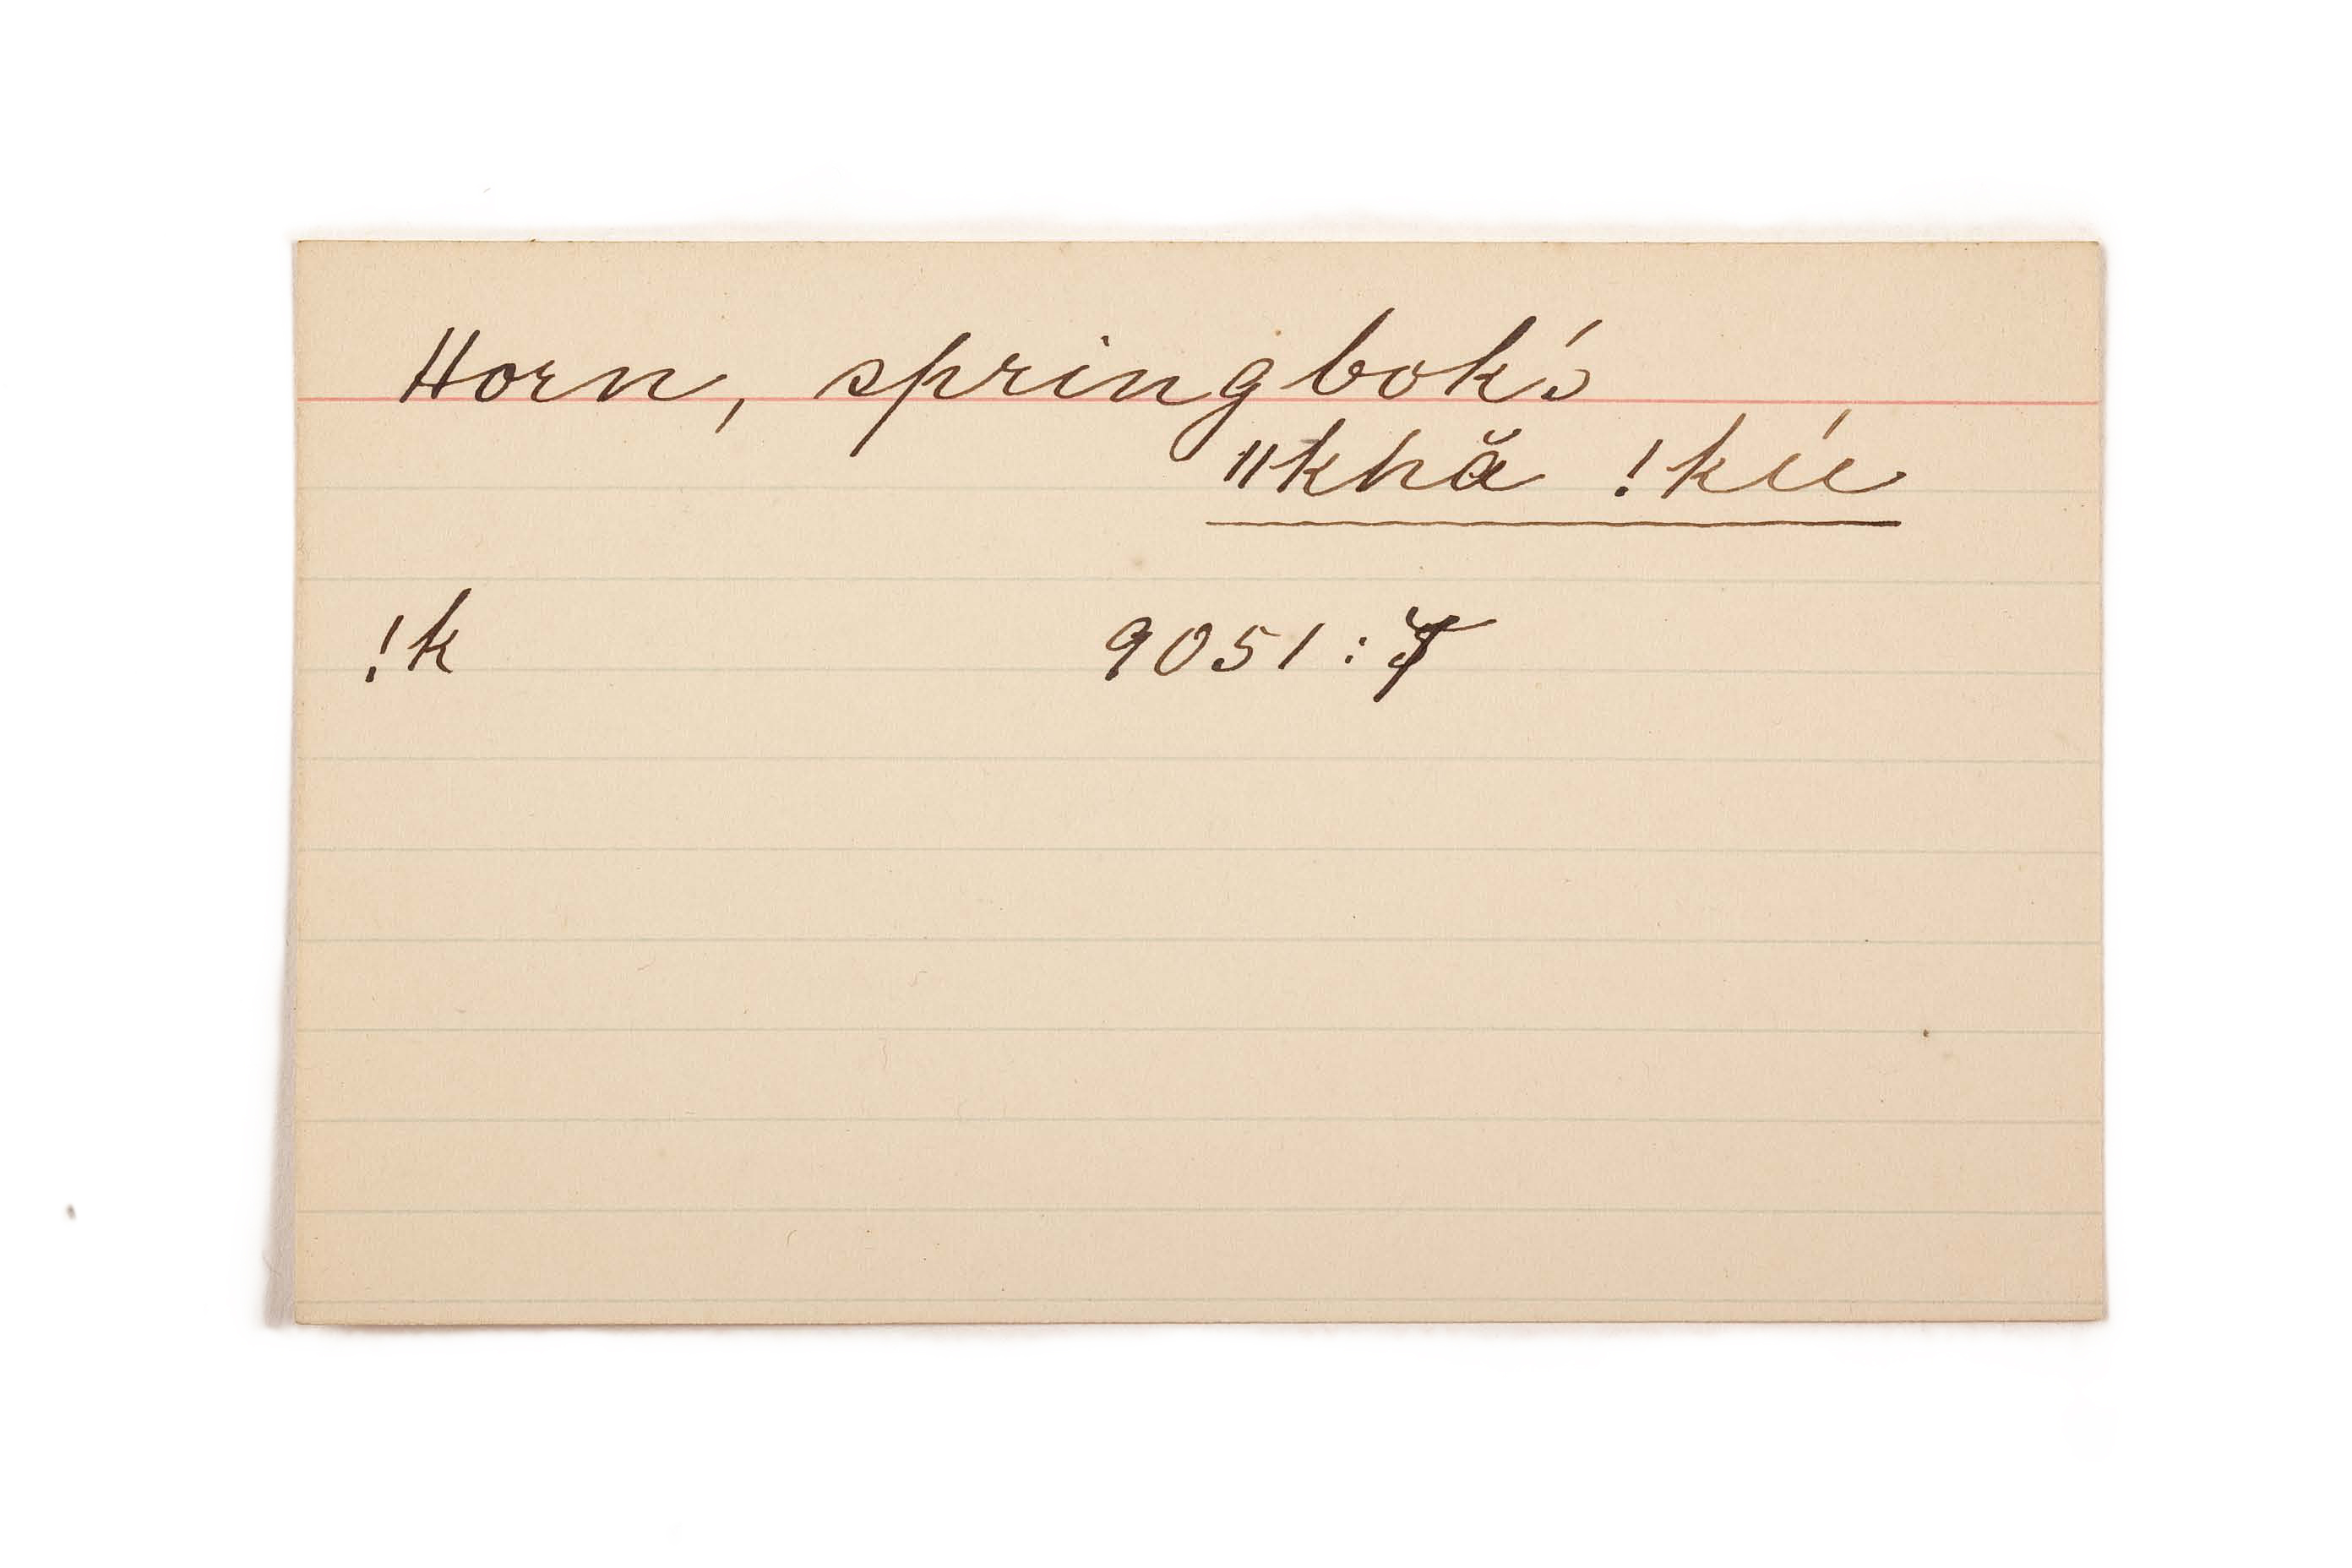 Horn, springbok's
ǁkhă !kíe
!k 9051:7